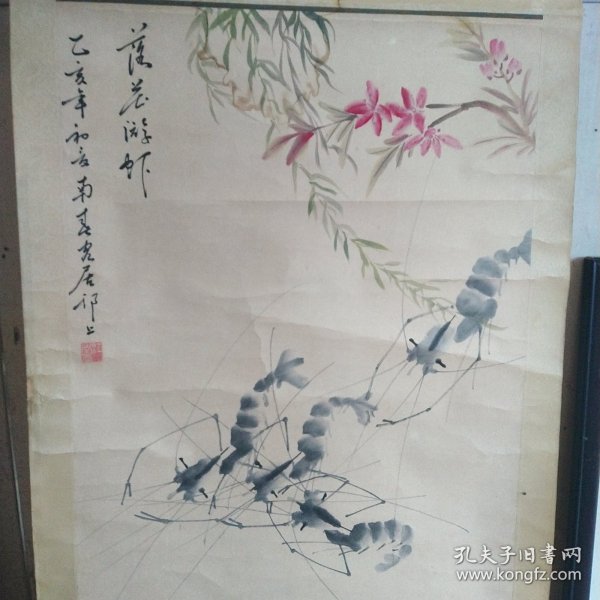 落花游虾
乙亥年初春南春客居邗上
孔夫子旧书网
www.kongfz.com